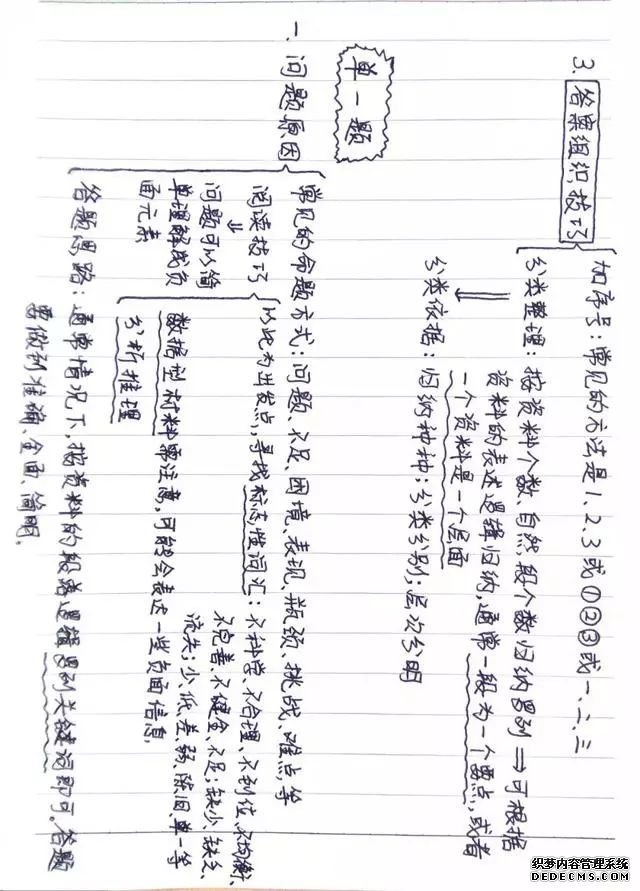 3. 答案组织技巧
加序号：常见的方法是1、2、3或①②③或一、二、三
分类整理：按资料个数、自然段个数归纳罗列⇒可根据
资料的表述逻辑归纳，通常一段为一个要点，或者
一个资料是一个层面
分类依据：归纳种种；分类分别；层次分明
单一题
一、问题原因
常见的命题方式：问题、不足、困境、表现、瓶颈、挑战、难点等
阅读技巧
问题可以简
单理解成负
面元素
以此为出发点，寻找标志性词汇：不科学、不合理、不到位、不均衡、
不完善、不健全、不足；缺少、缺乏、
流失；少、低、差、弱、陈旧、单一等
数据型材料需注意，可能会表述一些负面信息
分析推理
答题思路：通常情况下，按资料的段落逻辑罗列关键词即可。答题
要做到准确、全面、简明。
织梦内容管理系统
DEDECMS.COM